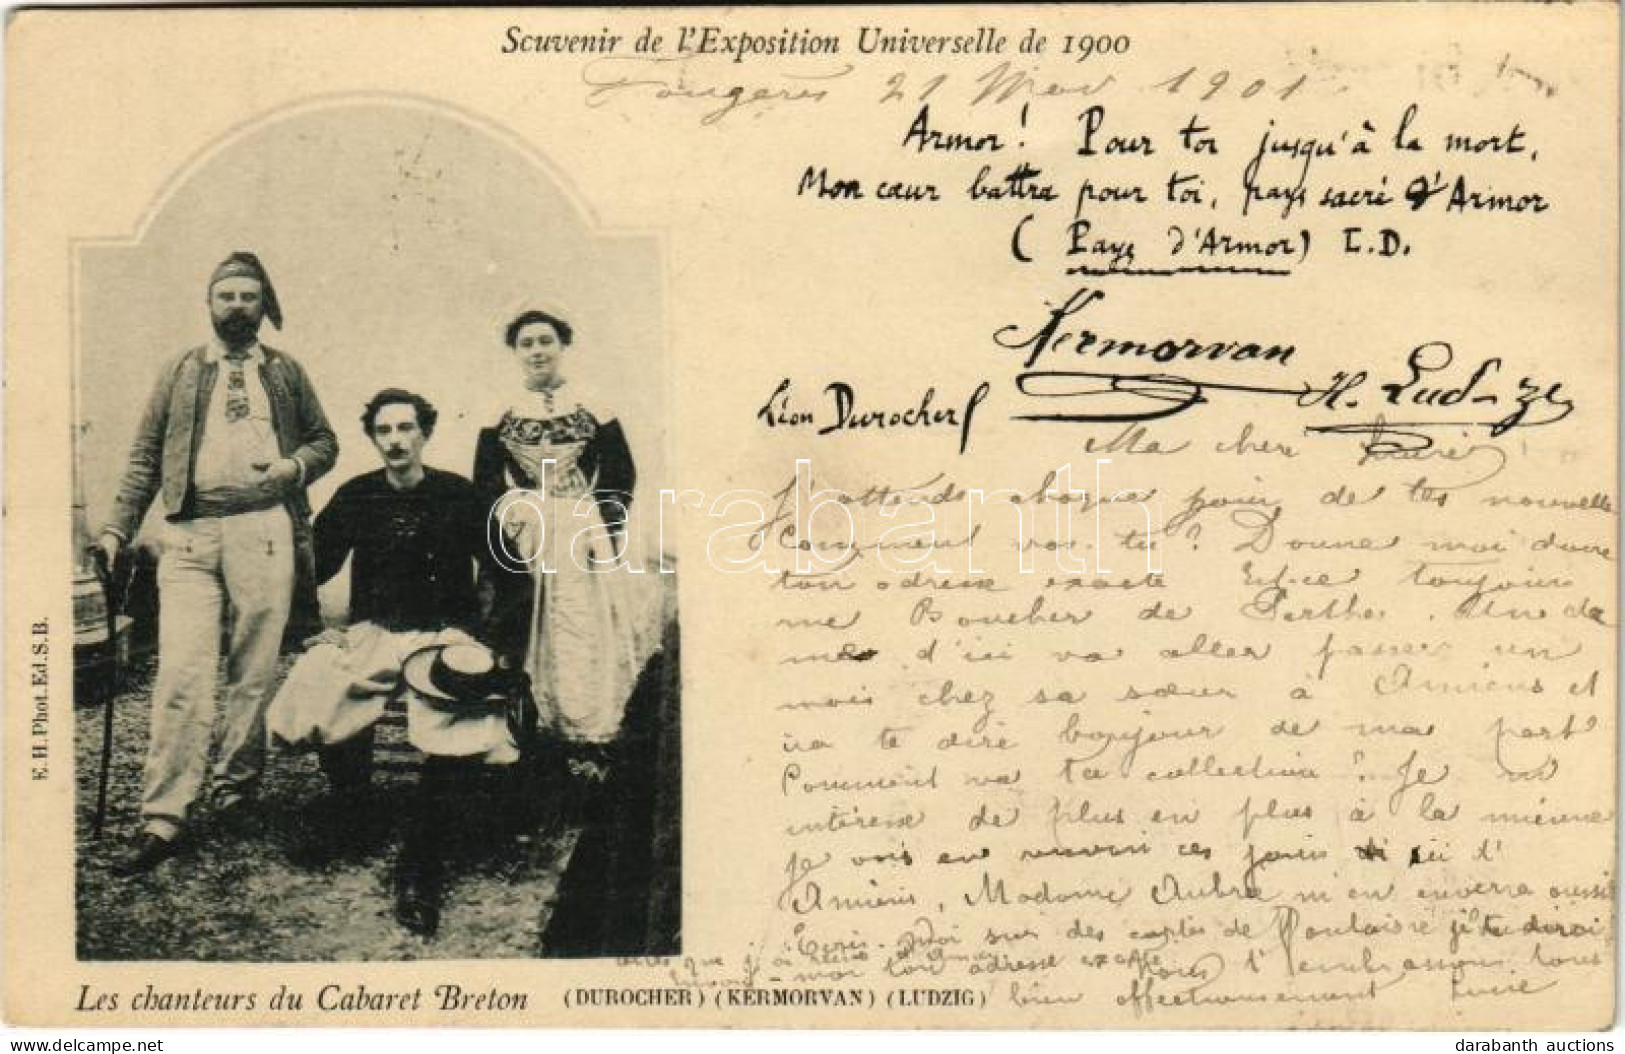 Souvenir de l'Exposition Universelle de 1900
Fougères 21 1901
Armor! Pour toi jusqu'à la mort,
Mon cœur battra pour toi, pays sacré d'Armor
(Pays d'Armor) L.D.
Kermorvan
Léon Durocher
H. Ludzig
Ma chère
J'attends chaque jour de tes nouvelle
Comment vas-tu? Donne moi donc
ton adresse exacte Est-ce toujours
rue Boucher de Perthes. Une da
me d'ici va aller passer un
mois chez sa sœur à Amiens et
ira te dire bonjour de ma part
Comment va ta collection? Je m'
intéresse de plus en plus à la mienne
je vais en ces jours ici d'
Amiens, Madame m'en enverra aussi
Écris-moi sur des cartes de je te dirai
celles que j'ai
moi ton adresse exacte
Tous t'embrassons tous
bien affectueusement Lucie
E.H.Phot.Ed.S.B.
Les chanteurs du Cabaret Breton (DUROCHER) (KERMORVAN) (LUDZIG)
darabanth
www.delcampe.net
darabanth auctions